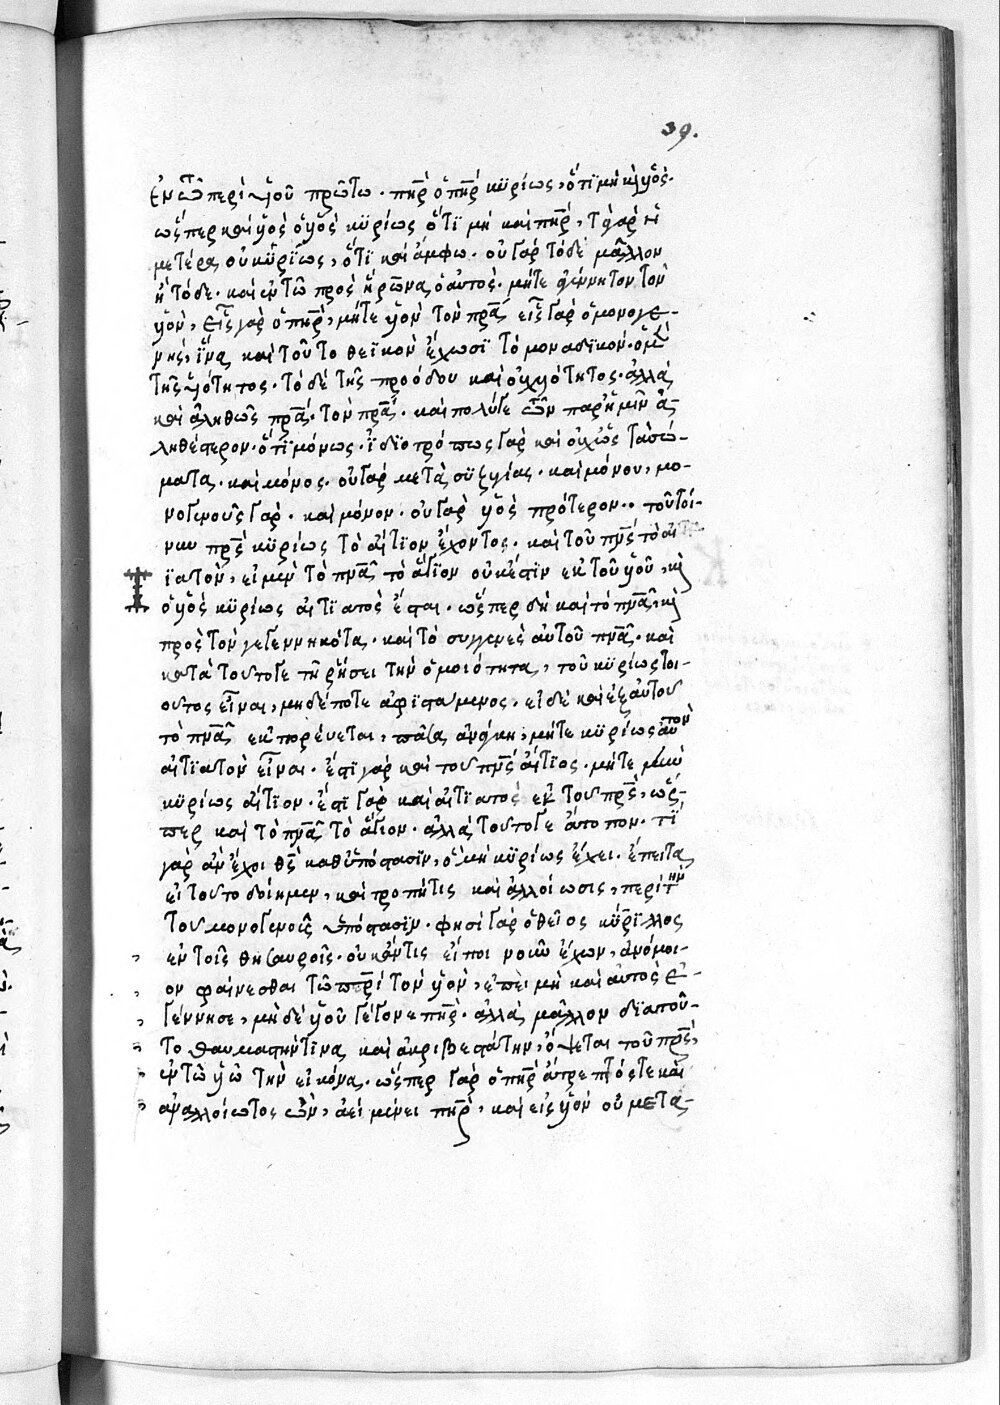 39.
ἐν τῶ περὶ υἱοῦ πρώτω· πηρ ὁ πηρ κυρίως, ὅτι μὴ καὶ υἱός·
ὥσπερ καὶ υἱὸς ὁ υἱὸς κυρίως ὅτι μὴ καὶ πηρ, τὰ γὰρ ἡ
μέτερα οὐ κυρίως, ὅτι καὶ ἄμφω· οὐ γὰρ τόδε μᾶλλον
ἢ τόδε· καὶ ἐν τῶ πρὸς ἥρωνα ὁ αὐτός· μήτε γέννητον τὸν
υἱὸν, εἷς γὰρ ὁ πηρ, μήτε υἱὸν τὸν πρα εἷς γὰρ ὁ μονογε-
νης, ἵνα καὶ τοῦτο θεϊκὸν ἔχωσι τὸ μοναδικόν· ὁ μὲν
τῆς υἱότητος· τὸ δὲ τῆς προόδου καὶ οὐχ υἱότητος· ἀλλὰ
καὶ ἀληθῶς πρα· τὸν πρα· καὶ πολύγε τῶν παρ' ἡμῖν ἀ-
ληθέστερον· ὅτι μόνως· ἰδιοτρόπως γὰρ καὶ οὐχ ὡς τὰ σώ-
ματα· καὶ μόνος· οὐ γὰρ μετὰ συζυγίας· καὶ μόνου, μο-
νογενοῦς γάρ· καὶ μόνον· οὐ γὰρ υἱὸς πρότερον·· τοῦ τοί-
νυν πρς κυρίως τὸ αἴτιον ἔχοντος· καὶ τοῦ πνς τὸ αἰτ
ϊατὸν, εἰ μὲν τὸ πνα τὸ ἅγιον οὐκ ἔστιν ἐκ τοῦ υἱοῦ, καὶ
ὁ υἱὸς κυρίως αἰτιατὸς ἔσται· ὥσπερ δὴ καὶ τὸ πνα, καὶ
πρὸς τὸν γεγεννηκότα· καὶ τὸ συγγενὲς αὐτοῦ πνα· καὶ
κατὰ τοῦτό γε τηρήσει τὴν ὁμοιότητα, τοῦ κυρίως τοι-
οῦτος εἶναι, μηδέποτε ἀφιστάμενος· εἰ δὲ καὶ ἐξ αὐτοῦ
τὸ πνα ἐκπορεύεται, πᾶσα ἀνάγκη, μήτε κυρίως αὐτὸν
αἰτιατὸν εἶναι· ἔστι γὰρ καὶ τοῦ πνς αἴτιος· μήτε μὴν
κυρίως αἴτιον· ἔστι γὰρ καὶ αἰτιατὸς ἐκ τοῦ πρς, ὥσ-
περ καὶ τὸ πνα τὸ ἅγιον· ἀλλὰ τοῦτό γε ἄτοπον· τί
γὰρ ἂν ἔχοι θς καθ' ὑπόστασιν, ὃ μὴ κυρίως ἔχει· ἔπειτα
εἰ τοῦτο δοίημεν, καὶ τροπή τις καὶ ἀλλοίωσις, περὶ τὴν
τοῦ μονογενοῦς ὑπόστασιν· φησὶ γὰρ ὁ θεῖος κύριλλος
ἐν τοῖς θησαυροῖς· οὐκ ἄν τις εἴποι νοῦν ἔχων, ἀνόμοι-
ον φαίνεσθαι τῶ πρι τὸν υἱὸν, ἐπεὶ μὴ καὶ αὐτὸς ἐ-
γέννησε, μηδὲ υἱοῦ γέγονε πηρ· ἀλλὰ μᾶλλον διὰ τοῦ-
το θαυμαστήν τινα καὶ ἀκριβεστάτην, ὄψεται τοῦ πρς,
ἐν τῶ υἱῶ τὴν εἰκόνα· ὥσπερ γὰρ ὁ πηρ ἄτρεπτός τε καὶ
ἀναλλοίωτος ὢν, ἀεὶ μένει πηρ, καὶ εἰς υἱὸν οὐ μετα-